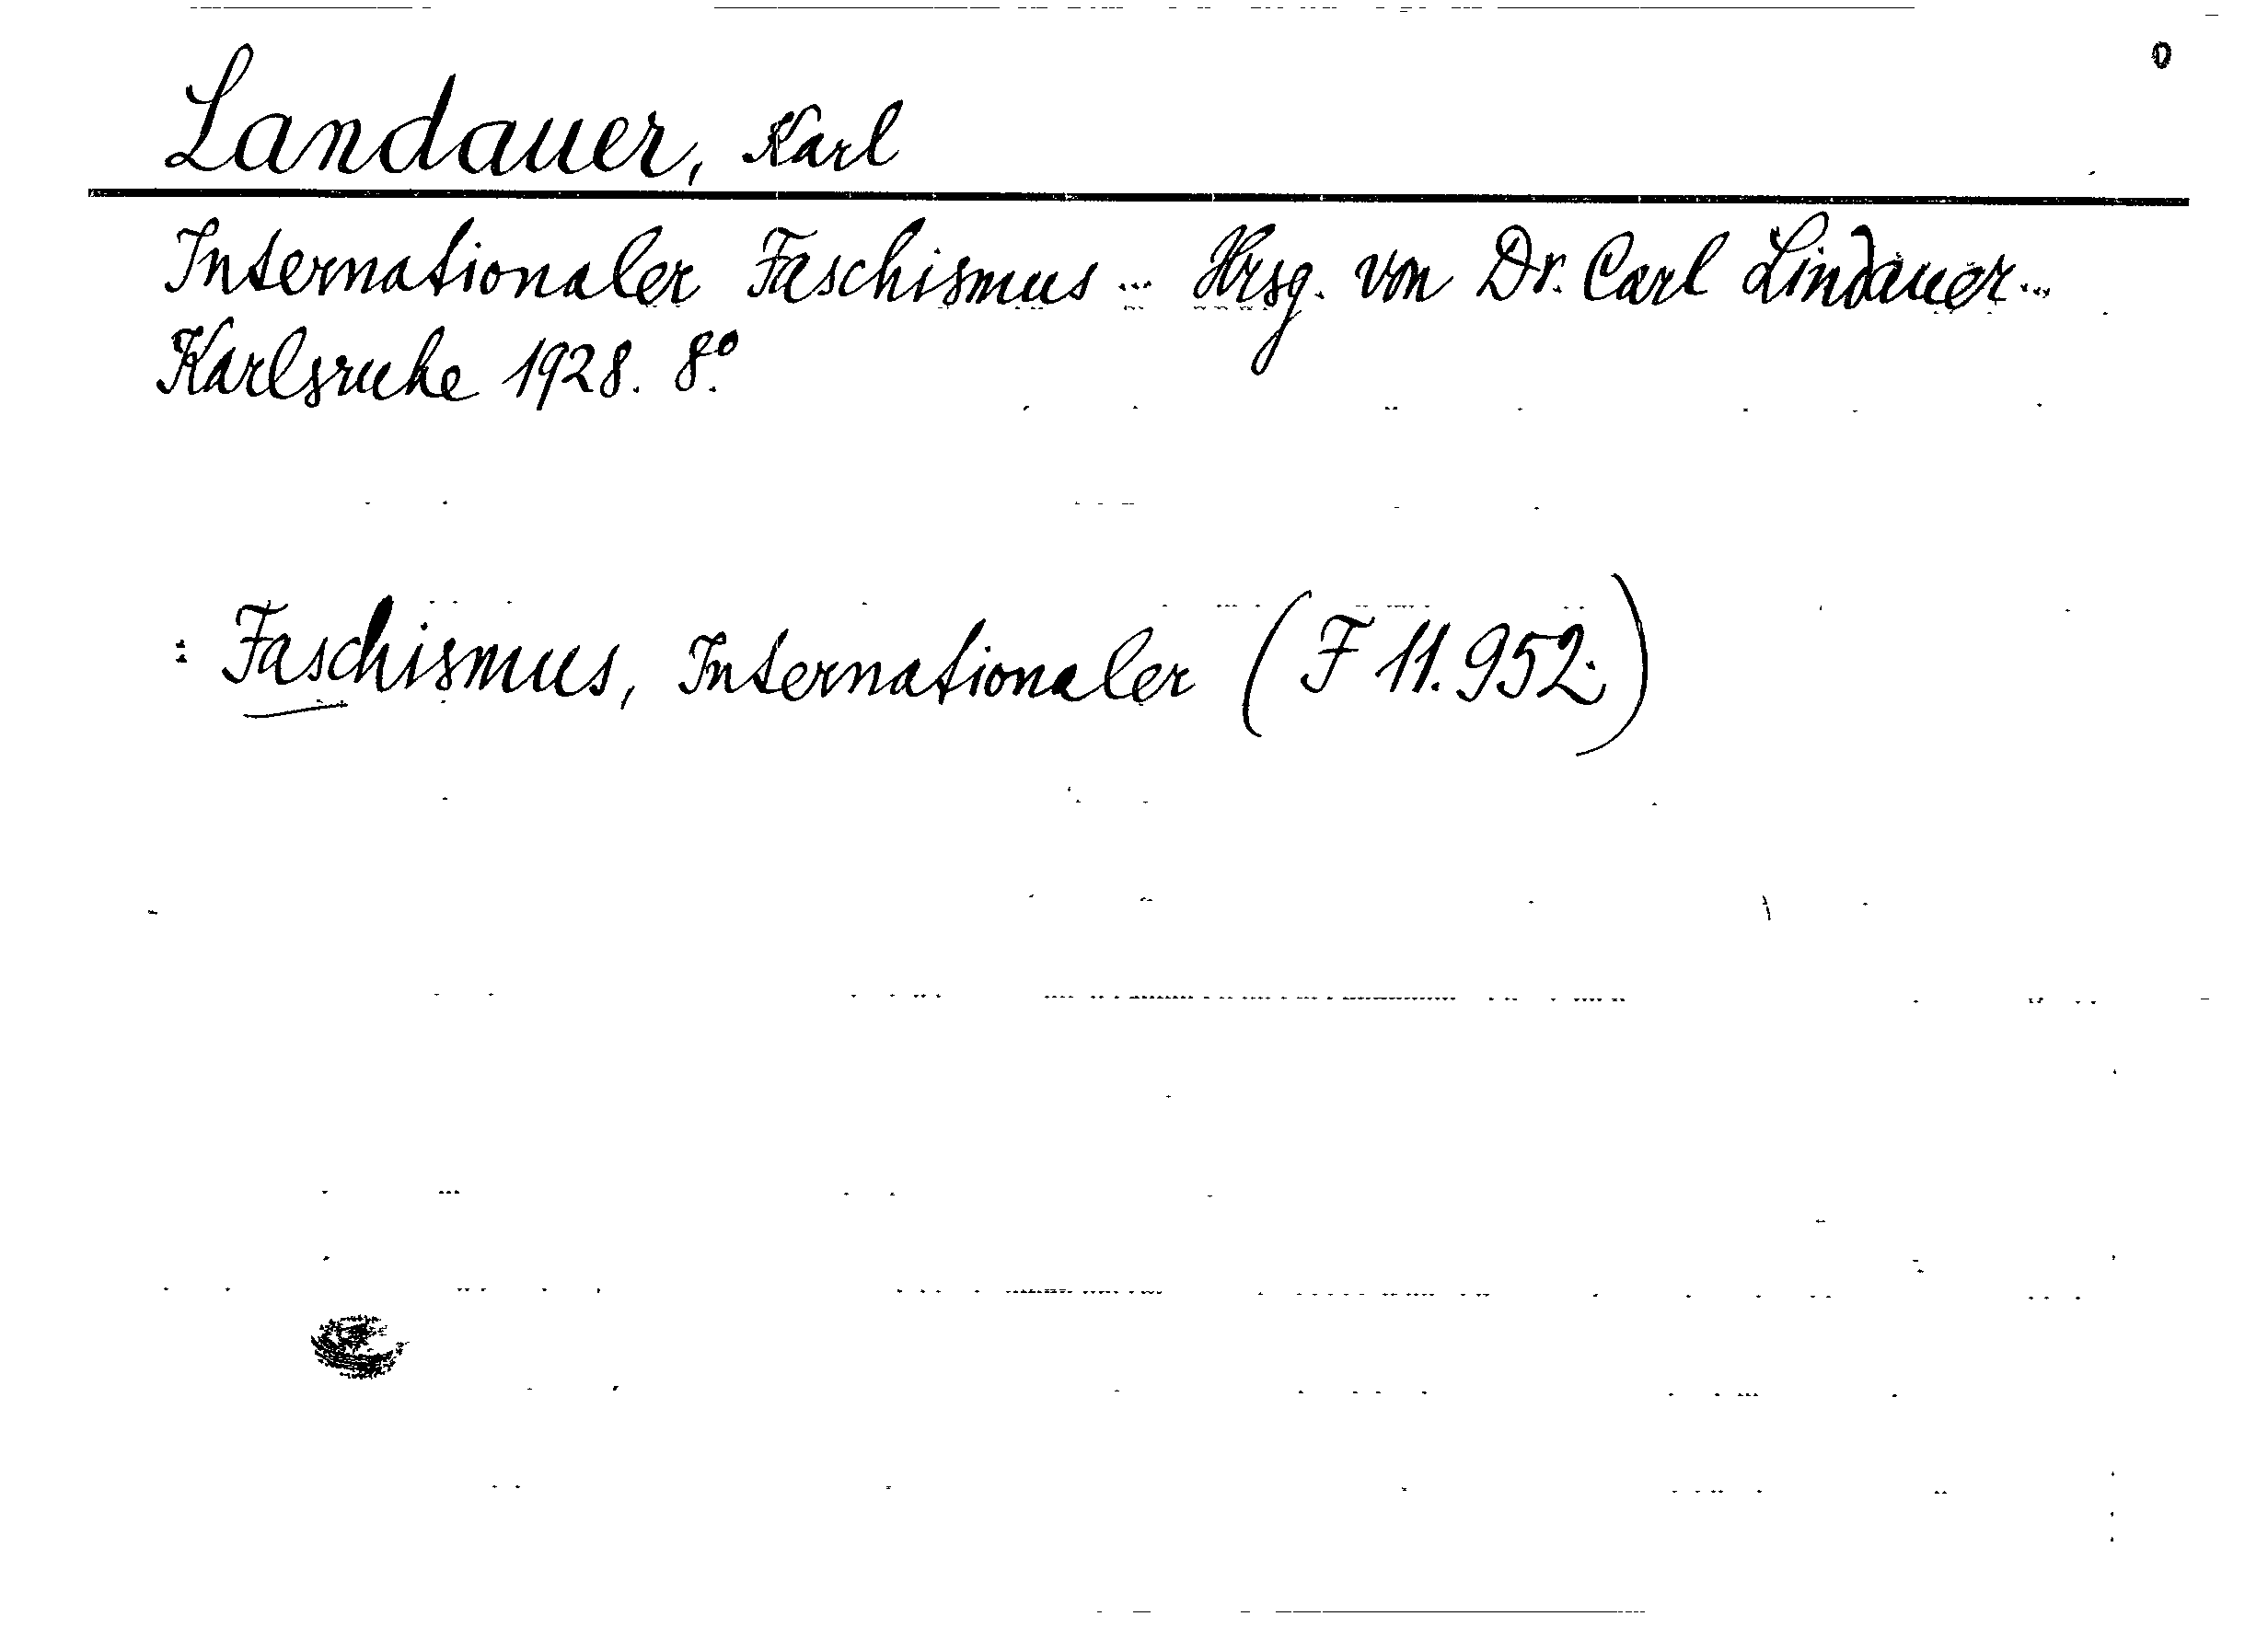 0
Landauer, Karl
Internationaler Faschismus ... Hrsg. von Dr. Carl Lindauer ...
Karlsruhe 1928. 8º.
: Faschismus, Internationaler (F 11.952.)